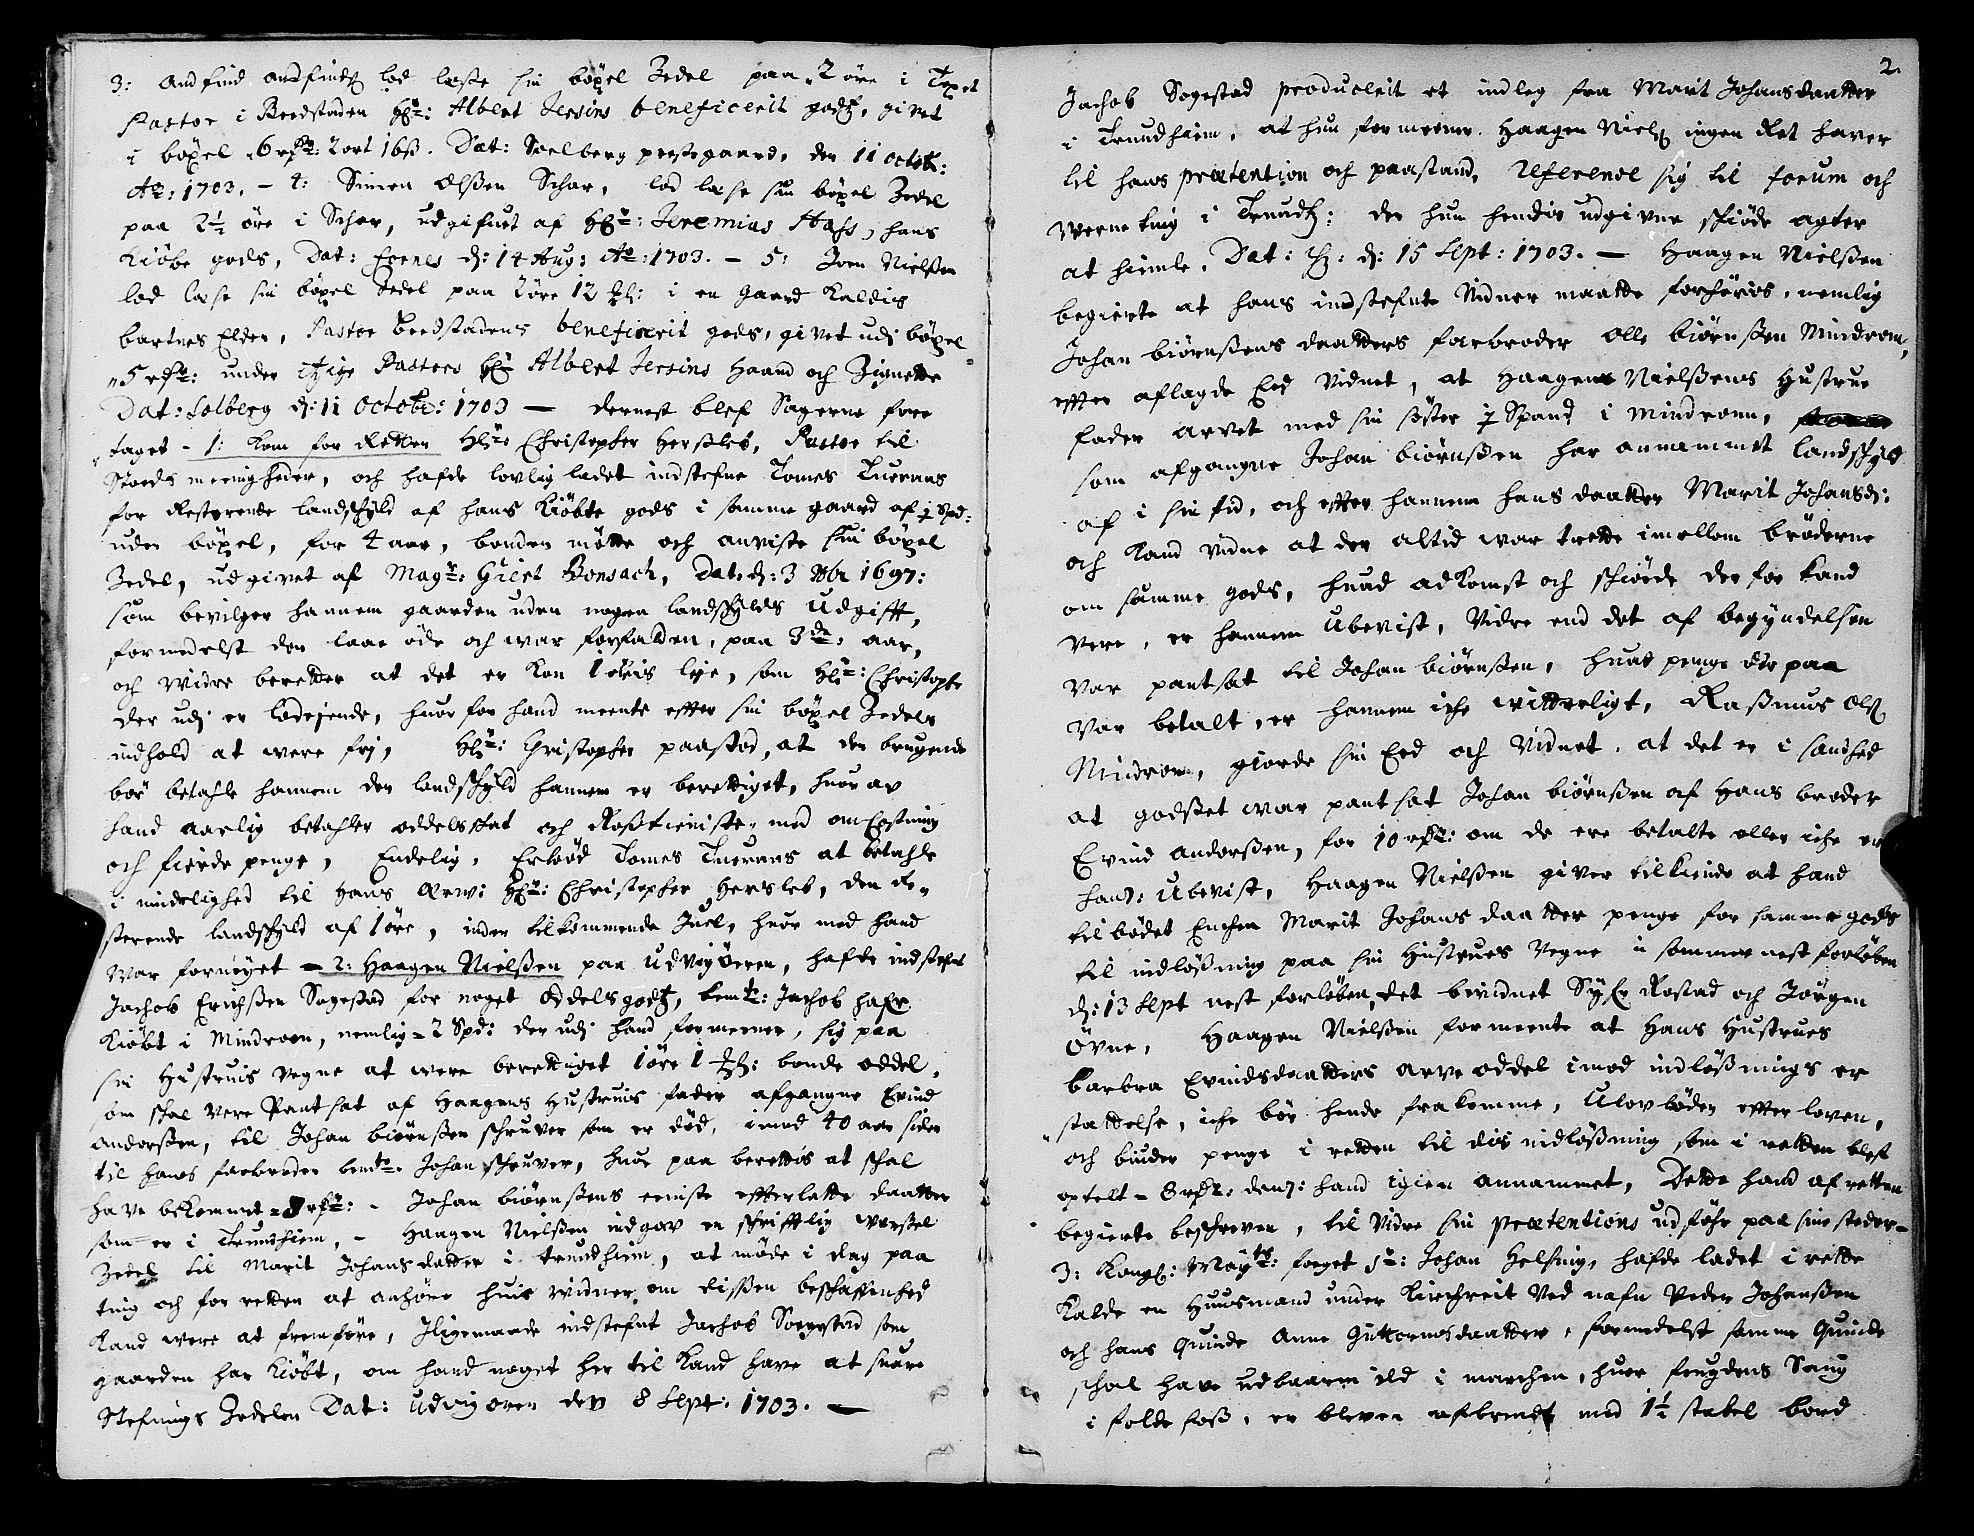 3: Andfind Andfinds: lod læsse sin böxel Zedel paa „2 öre i
Pastor i Beedstaden Hr: Albert Jersins beneficerit godtz, givet
i böxel „6 rdr: 2 ort 16ß. Dat: Soelberg prestegaard, den 11 octob:
Ao: 1703. – 4: Simen Olßen Schar, lod læse sin böxel Zedel
paa 2½ öre i Schar, udgifuet af Hr: Jeremias Hass, hans
Kiöbe gods, Dat: Eenes d: 14 Aug: Ao: 1703. – 5: Joen Nielßen
lod læse sin böxel Zedel paa 2 öre 12 i en gaard Kaldis
bartnes Elden, Pastor Beedstadens beneficerit gods, givet udj böxel
„5 rdr: under Pastors Hr Albert Jersins Haand och Zignette
Dat: Solberg d: 11 Octobr: 1703 — dernest blef Sagerne fore
taget – 1: Kom for Retten Hr: Christopher Herßleb, Pastor til
Stoeds meenigheder, och hafde lovlig ladet indstefne Tomes Tueraas
for Resterende landschyld af hans Kiöbte gods i samme gaard af ½ Spd:
uden böxel, for 4 aar, bonden mötte och anviste sin böxel
Zedel, udgivet af Magr: Giert Bonsach, Dat: d: 3 1697:
som bevilger hannem gaarden uden nogen landschylds Udgifft,
formedelst den laae öde och war forfalden, paa 3de: aar,
och Widre beretter at det er Kon 1 öris leje, som Hr: Christopher
der udj er lodejende, huor for hand meente effter sin böxel Zedels
indhold at were frj, Hr: Christopher paastod, at den brugende
bör betahle hannem den landschyld hannem er berettiget, huor av
hand aarlig betahler oddelsschat och Roßtieniste, med omkostning
och fierde penge, Endelig, Erböd Tomes Tueraas at betahle
i mindelighed til Hans Ærw: Hr: Christopher Hersleb, den Re„
sterende landschyld af 1 öre, inden tilkommende Juel, huor med hand
war fornöyet – 2: Haagen Nielßen paa Udvigöeren, hafde indstefnt
Jachob Erichßen Sagestad for noget Oddelsgodtz, bemte: Jachob hafr
Kiöbt i Mindroen, nemlig „2 Spd: der udj hand formeener, sig paa
sin Hustruis vegne at were berettiget 1 öre 1 bonde oddel,
som skal vere Pantsat af Haagens Hustruis fader afgangne Evind
Andorßen, til Johan biörnßen schruver som er död, imod 40 aar siden
til hans farbroder bemte: Johan schruver, huor paa berettis at schal
have bekommet „8 rdr: – Johan biörnßens eeniste efterlatte daatter
som er i Trundhiem, – Haagen Nielßen indgav en schrifftlig warßel
Zedel til Marit Johansdatter i trundhiem, at möde i dag paa
ting och for retten at anhöre huis widner om dissen beschaffenhed
Kand were at fremföre, Iligemaade indstefnt Jachob Soegestad som
gaarden har Kiöbt, om hand noget her til Kand have at suare
Stefnings Zedelen Dat: Udvigoren den 8 Sept: 1703. —
2.
Jachob Sogestad producerit et indleg fra Marit Johansdaatter
i Trundhiem, at hun formeener Haagen Niels: ingen Ret haver
til hans prætention och paastand, Referende sig til forum och
Werneting i Trundh: der hun hendis udgivne schiöde agter
at hiemle. Dat: d: 15 Sept: 1703. — Haagen Nielßen
begierte at hans indstefnte Vidner maatte forhöris, nemlig
Johan biörnßens daatters farbroder Olle biörnßen Mindroen,
effter aflagde Eed Vidnet, at Haagens Nielßens Hustrue
fader arvet med sin söster ½ Spand i Mindroen,
som afgangne Johan biörnßen har annammet landschyld
af i sin tid, och effter hannem hans daatter Marit Johansd:
och Kand Vidne at der altid war trette imellom bröderne
om samme gods, huad adkomst och schiöde der for kand
vere, er hannem Ubevist, Vidre end det af begyndelsen
var pantsat til Johan biörnßen, huad penge der paa
var betalt, er hannem iche witterligt, Raßmus Olß
Mindroen, giorde sin Eed och Vidnet, at det er i sandhed
at godset war pantsat Johan biörnßen af Hans broder
Evind Andorßen, for 10 rdr: om de ere betalte eller iche er
hand: Ubevist, Haagen Nielßen giver tilkiende at hand
tilbödet Enchen Marit Johans daatter penge for samme gods
til indlößning paa sin Hustrues Vegne i sommer nest forlöben
d: 13 Sept nest forlöben, det bevidnet Rostad och Jörgen
Övne, Haagen Nielßen formeente at Hans Hustrues
Barbra Evindsdaatters arve oddel imod indlößnings er
stattelse, iche bör hende frakomme, Ulovböden efter loven,
och binder penge i retten til dis indlößning som i retten blef
optelt – 8 rdr: dend: hand igien annammet, Dette hand af retten
begierte beschreven, til Vidre sin prætentions udföhr paa sine steder –
3: Kongl: Maÿts: foeget Sr: Johan Helsing, hafde ladet i rette
Kalde en Huusmand under Kirchreit Ved nafn Peder Johanßen
och hans Quinde Anne Guttormsdaatter, formedelst samme Quinde
schal have udbaaren ild i marchen, huor feugdens Saug
i folde foß, er bleven afbrendt med 1½ stabel bord